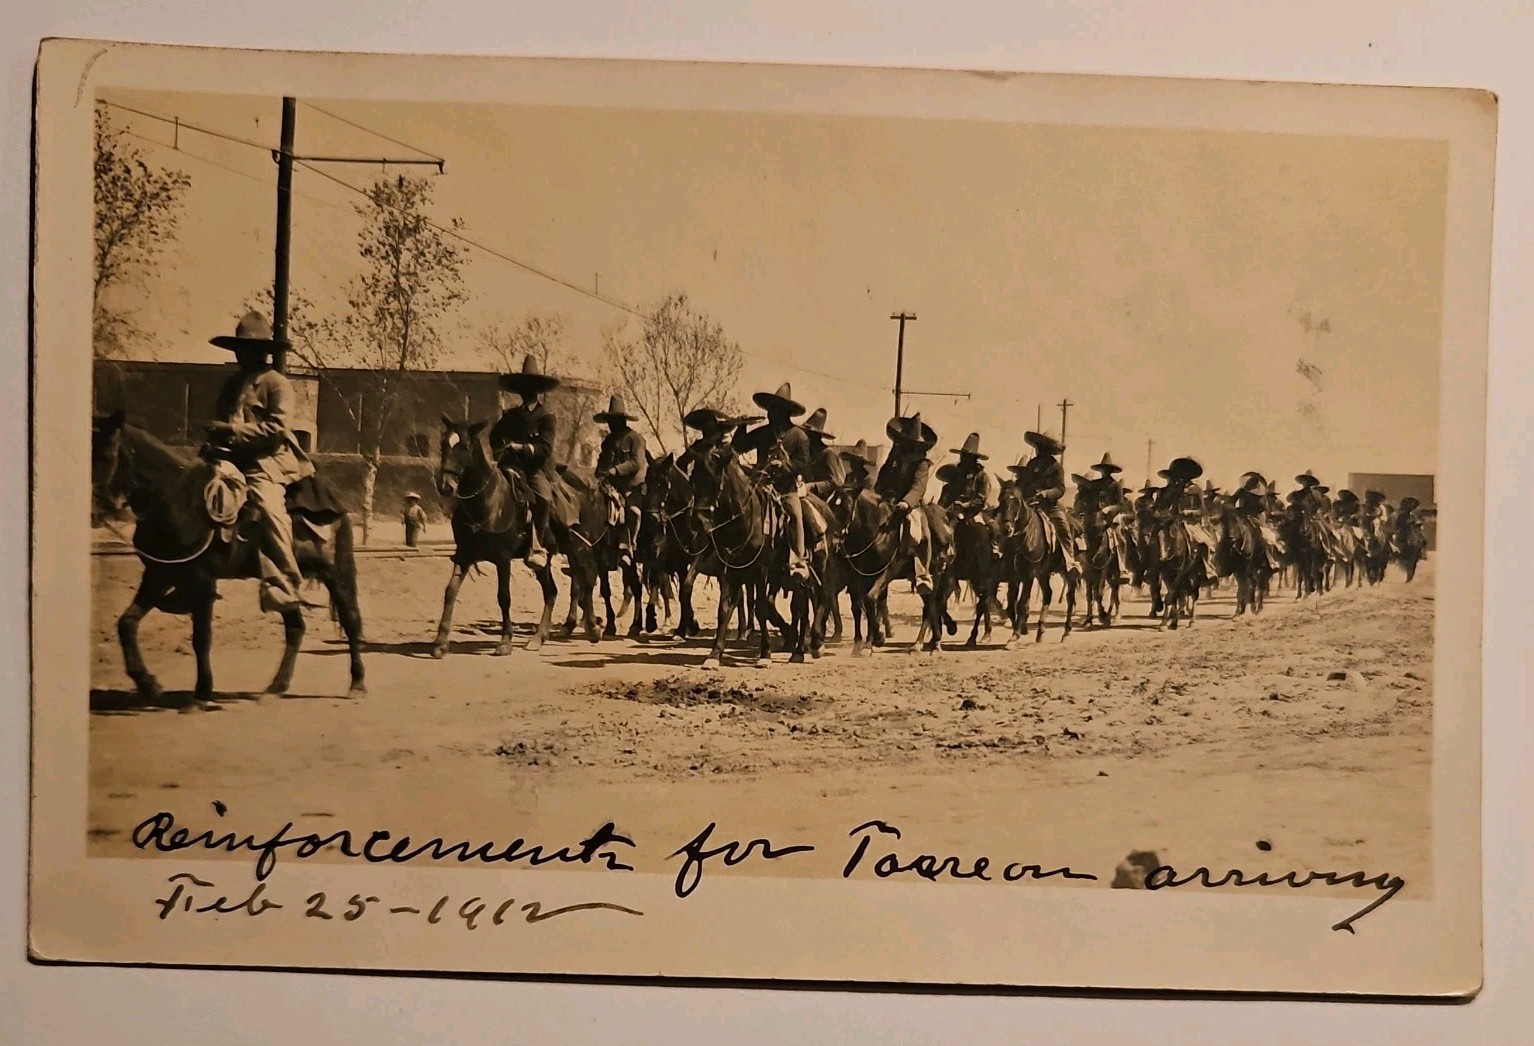 Reinforcements for Tooreon arriving
Feb 25-1912